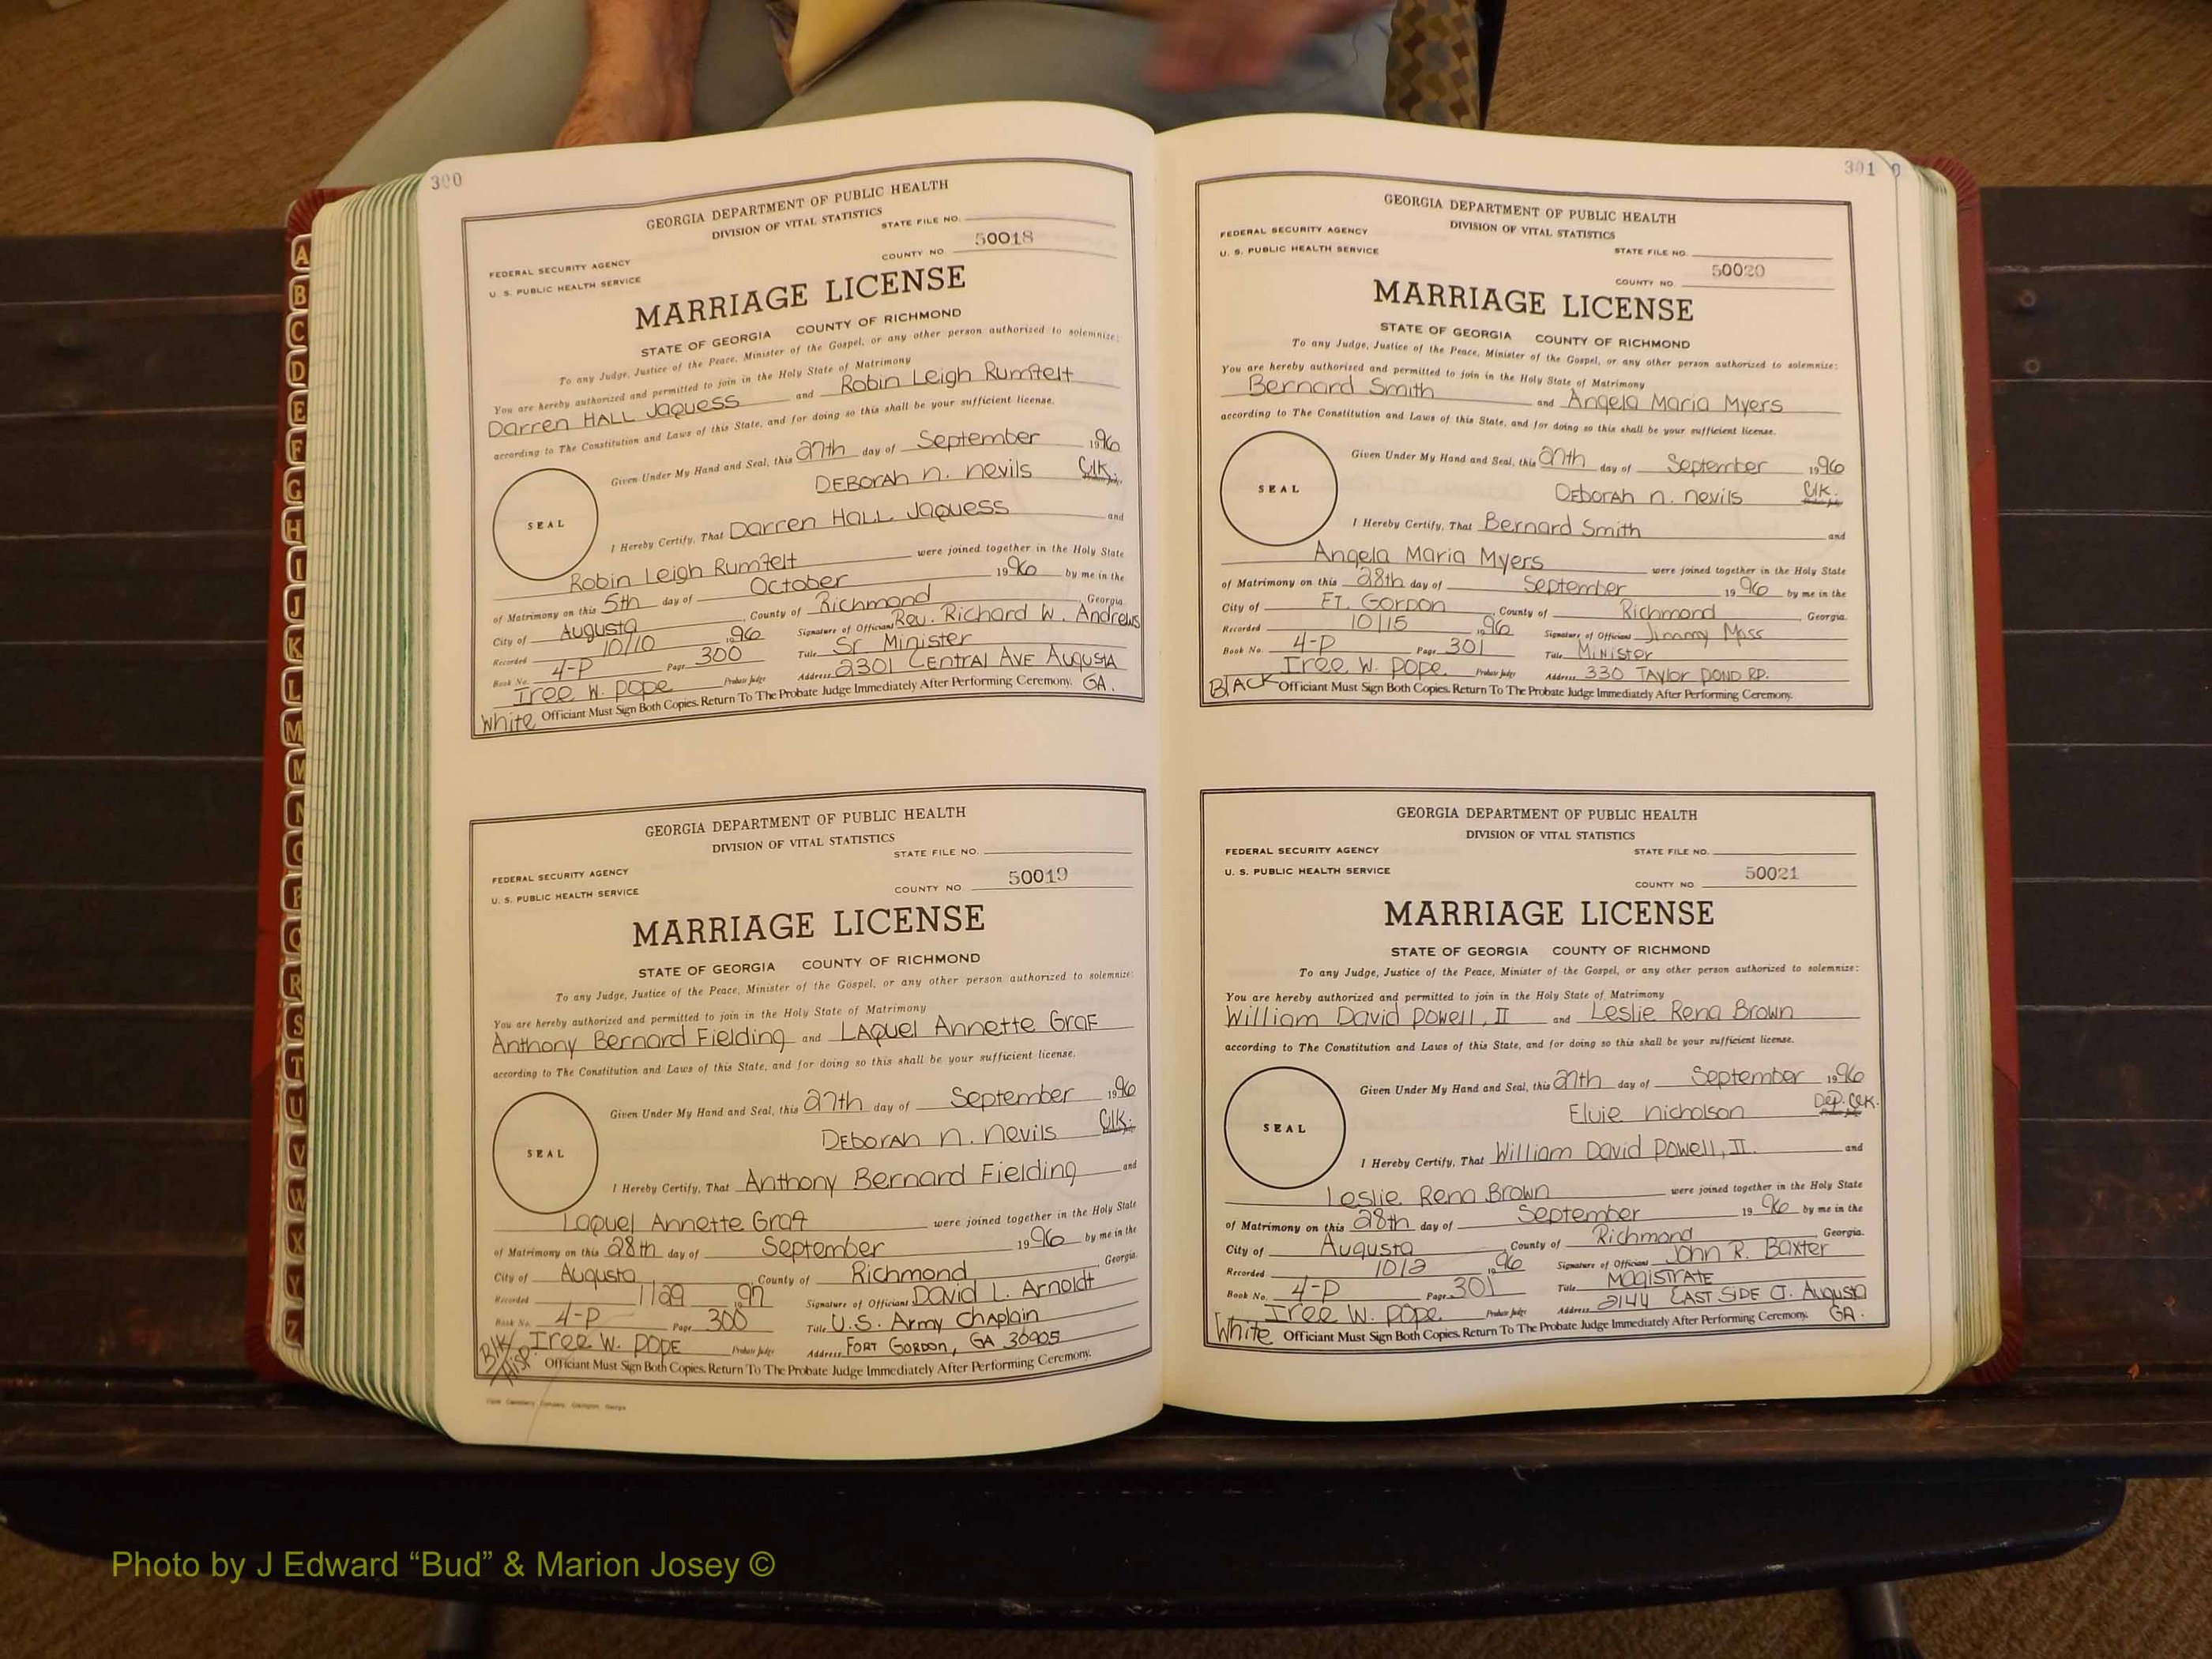 300
GEORGIA DEPARTMENT OF PUBLIC HEALTH
DIVISION OF VITAL STATISTICS
STATE FILE NO.
COUNTY NO. 50018
FEDERAL SECURITY AGENCY
U. S. PUBLIC HEALTH SERVICE
MARRIAGE LICENSE
STATE OF GEORGIA COUNTY OF RICHMOND
To any Judge, Justice of the Peace, Minister of the Gospel, or any other person authorized to solemnize:
You are hereby authorized and permitted to join in the Holy State of Matrimony
Darren HALL Jaquess and Robin Leigh Rumfelt
according to The Constitution and Laws of this State, and for doing so this shall be your sufficient license.
Given Under My Hand and Seal, this 27th day of September 1996
DEBORAH N. NEVILS Clk.
SEAL
I Hereby Certify, That Darren HALL Jaquess and
Robin Leigh Rumfelt were joined together in the Holy State
of Matrimony on this 5th day of October 1996 by me in the
City of Augusta, County of Richmond, Georgia.
Recorded 10/10 1996 Signature of Officiant Rev. Richard W. Andrews
Book No. 4-P Page 300 Title Sr Minister
Iree W. Pope Probate Judge Address 2301 CENTRAL AVE AUGUSTA GA.
White Officiant Must Sign Both Copies. Return To The Probate Judge Immediately After Performing Ceremony.
GEORGIA DEPARTMENT OF PUBLIC HEALTH
DIVISION OF VITAL STATISTICS
STATE FILE NO.
FEDERAL SECURITY AGENCY
U. S. PUBLIC HEALTH SERVICE
COUNTY NO. 50019
MARRIAGE LICENSE
STATE OF GEORGIA COUNTY OF RICHMOND
To any Judge, Justice of the Peace, Minister of the Gospel, or any other person authorized to solemnize:
You are hereby authorized and permitted to join in the Holy State of Matrimony
Anthony Bernard Fielding and LAQuel Annette Graf
according to The Constitution and Laws of this State, and for doing so this shall be your sufficient license.
Given Under My Hand and Seal, this 27th day of September 1996
DEBORAH N. NEVILS Clk.
SEAL
I Hereby Certify, That Anthony Bernard Fielding and
Laquel Annette Graft were joined together in the Holy State
of Matrimony on this 28th day of September 1996 by me in the
City of Augusta, County of Richmond, Georgia.
Recorded 1/29 1997 Signature of Officiant David L. Arnoldt
Book No. 4-P Page 300 Title U.S. Army Chaplain
Iree W. POPE Probate Judge Address FORT GORDON, GA 30905
Blk/Hisp. Officiant Must Sign Both Copies. Return To The Probate Judge Immediately After Performing Ceremony.
301
GEORGIA DEPARTMENT OF PUBLIC HEALTH
DIVISION OF VITAL STATISTICS
FEDERAL SECURITY AGENCY
U. S. PUBLIC HEALTH SERVICE
STATE FILE NO.
COUNTY NO. 50020
MARRIAGE LICENSE
STATE OF GEORGIA COUNTY OF RICHMOND
To any Judge, Justice of the Peace, Minister of the Gospel, or any other person authorized to solemnize:
You are hereby authorized and permitted to join in the Holy State of Matrimony
Bernard Smith and Angela Maria Myers
according to The Constitution and Laws of this State, and for doing so this shall be your sufficient license.
Given Under My Hand and Seal, this 27th day of September 1996
DEBORAH N. NEVILS Clk.
SEAL
I Hereby Certify, That Bernard Smith and
Angela Maria Myers were joined together in the Holy State
of Matrimony on this 28th day of September 1996 by me in the
City of FT. GORDON, County of Richmond, Georgia.
Recorded 10/15 1996 Signature of Officiant Jimmy Moss
Book No. 4-P Page 301 Title MINISTER
Iree W. Pope Probate Judge Address 330 TAYLOR POND RD.
BLACK Officiant Must Sign Both Copies. Return To The Probate Judge Immediately After Performing Ceremony.
GEORGIA DEPARTMENT OF PUBLIC HEALTH
DIVISION OF VITAL STATISTICS
FEDERAL SECURITY AGENCY
STATE FILE NO.
U. S. PUBLIC HEALTH SERVICE
COUNTY NO 50021
MARRIAGE LICENSE
STATE OF GEORGIA COUNTY OF RICHMOND
To any Judge, Justice of the Peace, Minister of the Gospel, or any other person authorized to solemnize:
You are hereby authorized and permitted to join in the Holy State of Matrimony
William David Powell, II and Leslie Rena Brown
according to The Constitution and Laws of this State, and for doing so this shall be your sufficient license.
Given Under My Hand and Seal, this 27th day of September 1996
Elvie Nicholson Dep. Clk.
SEAL
I Hereby Certify, That William David Powell, II. and
Leslie Rena Brown were joined together in the Holy State
of Matrimony on this 28th day of September 1996 by me in the
City of Augusta, County of Richmond, Georgia.
Recorded 10/2 1996 Signature of Officiant John R. Baxter
Book No. 4-P Page 301 Title MAGISTRATE
Iree W. Pope Probate Judge Address 2144 EAST SIDE CT. Augusta GA.
White Officiant Must Sign Both Copies. Return To The Probate Judge Immediately After Performing Ceremony.
A
B
C
D
E
F
G
H
I
J
K
L
M
M
N
O
P
Q
R
S
T
U
V
W
X
Y
Z
Photo by J Edward “Bud” & Marion Josey ©